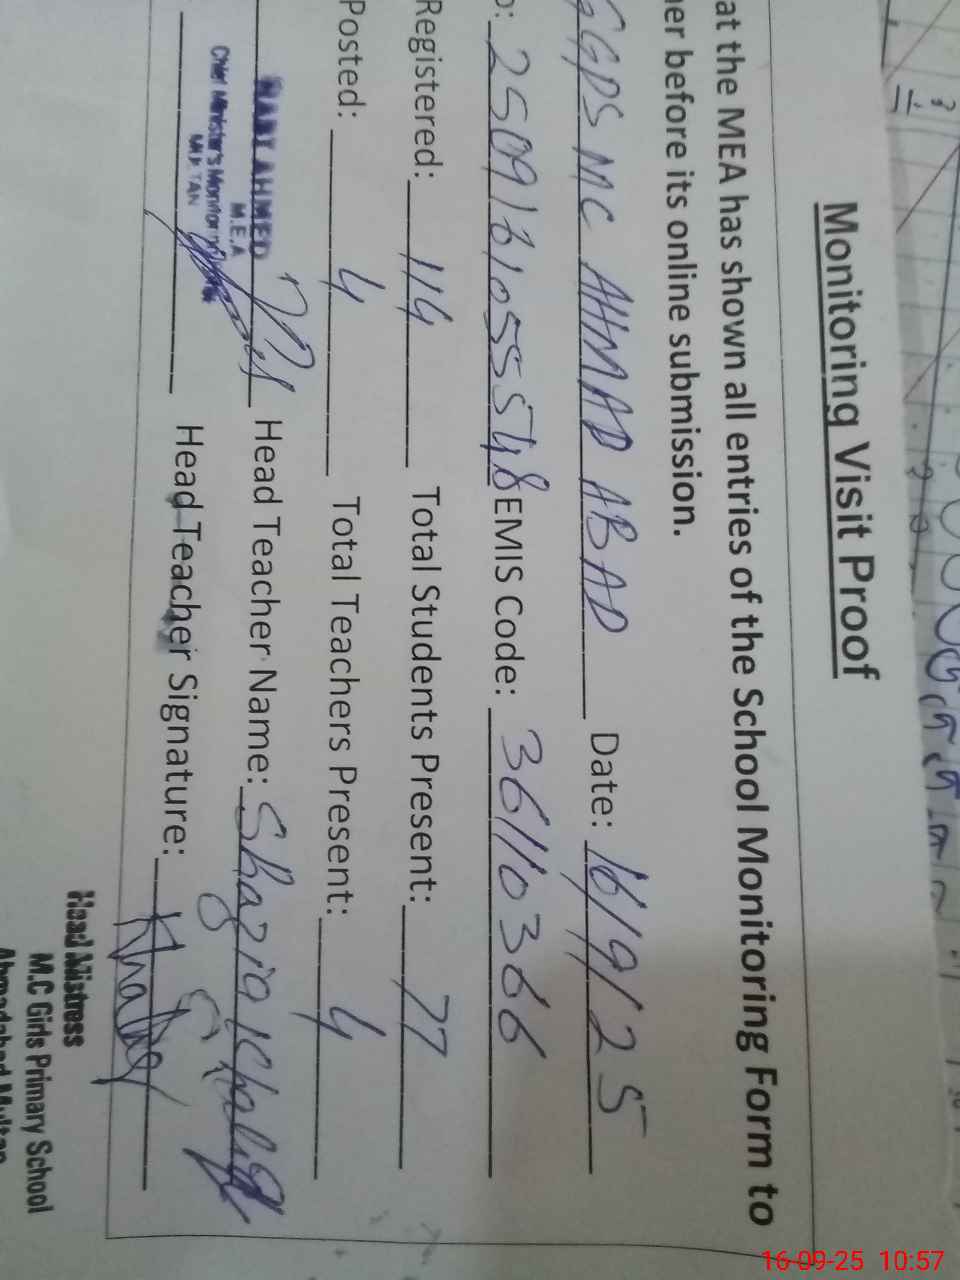 Monitoring Visit Proof
at the MEA has shown all entries of the School Monitoring Form to
her before its online submission.
GGPS MC AHMAD ABAD Date: 16/9/25
: 2509161055548 EMIS Code: 36110366
Registered: 114 Total Students Present: 77
Posted: 4 Total Teachers Present: 4
AHMED Head Teacher Name: Shazia Khaliq
M.E.A
Chief Minister's Monitoring
Head Teacher Signature:
Head Mistress
M.C Girls Primary School
Ahmadabad Multan
16-09-25 10:57